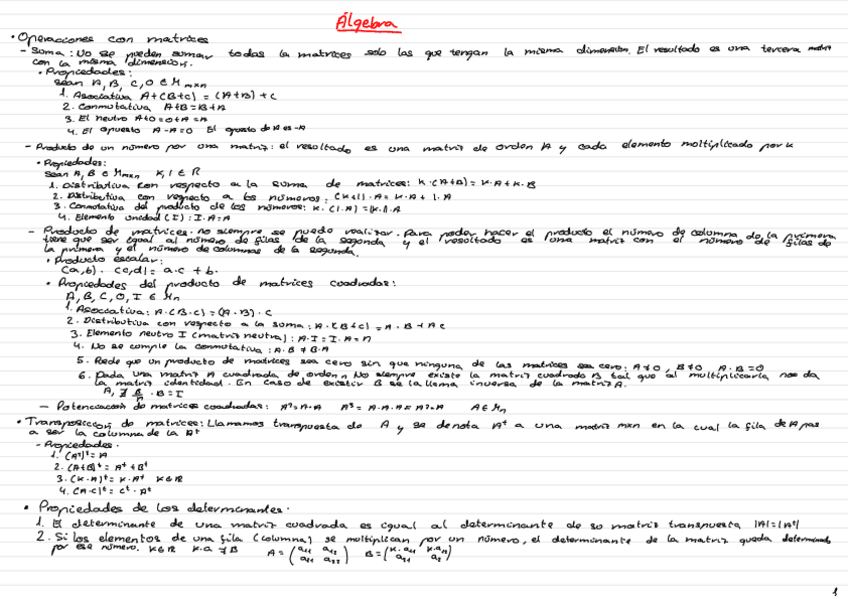 Álgebra
• Operaciones con matrices
- Suma: No se pueden sumar todas la matrices solo las que tengan la misma dimensión. El resultado es una tercera matriz
con la misma dimensión.
• Propiedades:
Sean A, B, C, O ∈ Mmxn
1. Asociativa A+(B+C) = (A+B)+C
2. Conmutativa A+B=B+A
3. El neutro A+O=O+A=A
4. El opuesto A-A=O El opuesto de A es -A
- Producto de un número por una matriz: el resultado es una matriz de orden A y cada elemento moltiplicado por K
• Propiedades:
Sean A, B ∈ Mmxn K, l ∈ R
1. Distributiva con respecto a la suma de matrices: K·(A+B) = K·A+K·B
2. Distributiva con respecto a los números: (K+l)·A = K·A + l·A
3. Conmutativa del producto de los números: K·(l·A) =
4. Elemento unidad (I): I·A=A
- Producto de matrices: no siempre se puede realizar. Para poder hacer el producto el número de columna de la primera
tiene que ser igual al número de filas de la segonda y el resultado es una matriz con el número de filas de
la primera y el número de columnas de la segunda.
• Producto escalar:
(a,b)·(c,d) = a·c + b·
• Propiedades del producto de matrices cuadradas:
A, B, C, O, I ∈ Mn
1. Asociativa: A·(B·C) = (A·B)·C
2. Distributiva con respecto a la suma: A·(B+C) = A·B + A C
3. Elemento neutro I (matriz neutra): A·I = I·A = A
4. No se cumple la conmutativa: A·B ≠ B·A
5. Puede que un producto de matrices sea cero sin que ninguna de las matrices sea cero: A≠O, B≠O A·B=O
6. Dada una matriz A cuadrada de orden n No siempre existe la matriz cuadrada B tal que al multiplicarla nos da
la matriz identidad. En caso de existir B se la llama inversa de la matriz A.
A, ∄ B · B = I
- Potenciación de matrices cuadradas: A²=A·A A³=A·A·A=A²·A A∈Mn
• Transposición de matrices: Llamamos transpuesta de A y se denota Aᵗ a una matriz mxn en la cual la fila de A pas
a ser la columna de la Aᵗ
- Propiedades.
1. (Aᵗ)ᵗ=A
2. (A+B)ᵗ = Aᵗ+Bᵗ
3. (K·A)ᵗ = K·Aᵗ K∈R
4. (A·C)ᵗ = Cᵗ·Aᵗ
• Propiedades de los determinantes.
1. El determinante de una matriz cuadrada es igual al determinante de su matriz transpuesta |A|=|Aᵗ|
2. Si los elementos de una fila (columna) se multiplican por un número, el determinante de la matriz queda
por ese número. K∈R A = B =
1